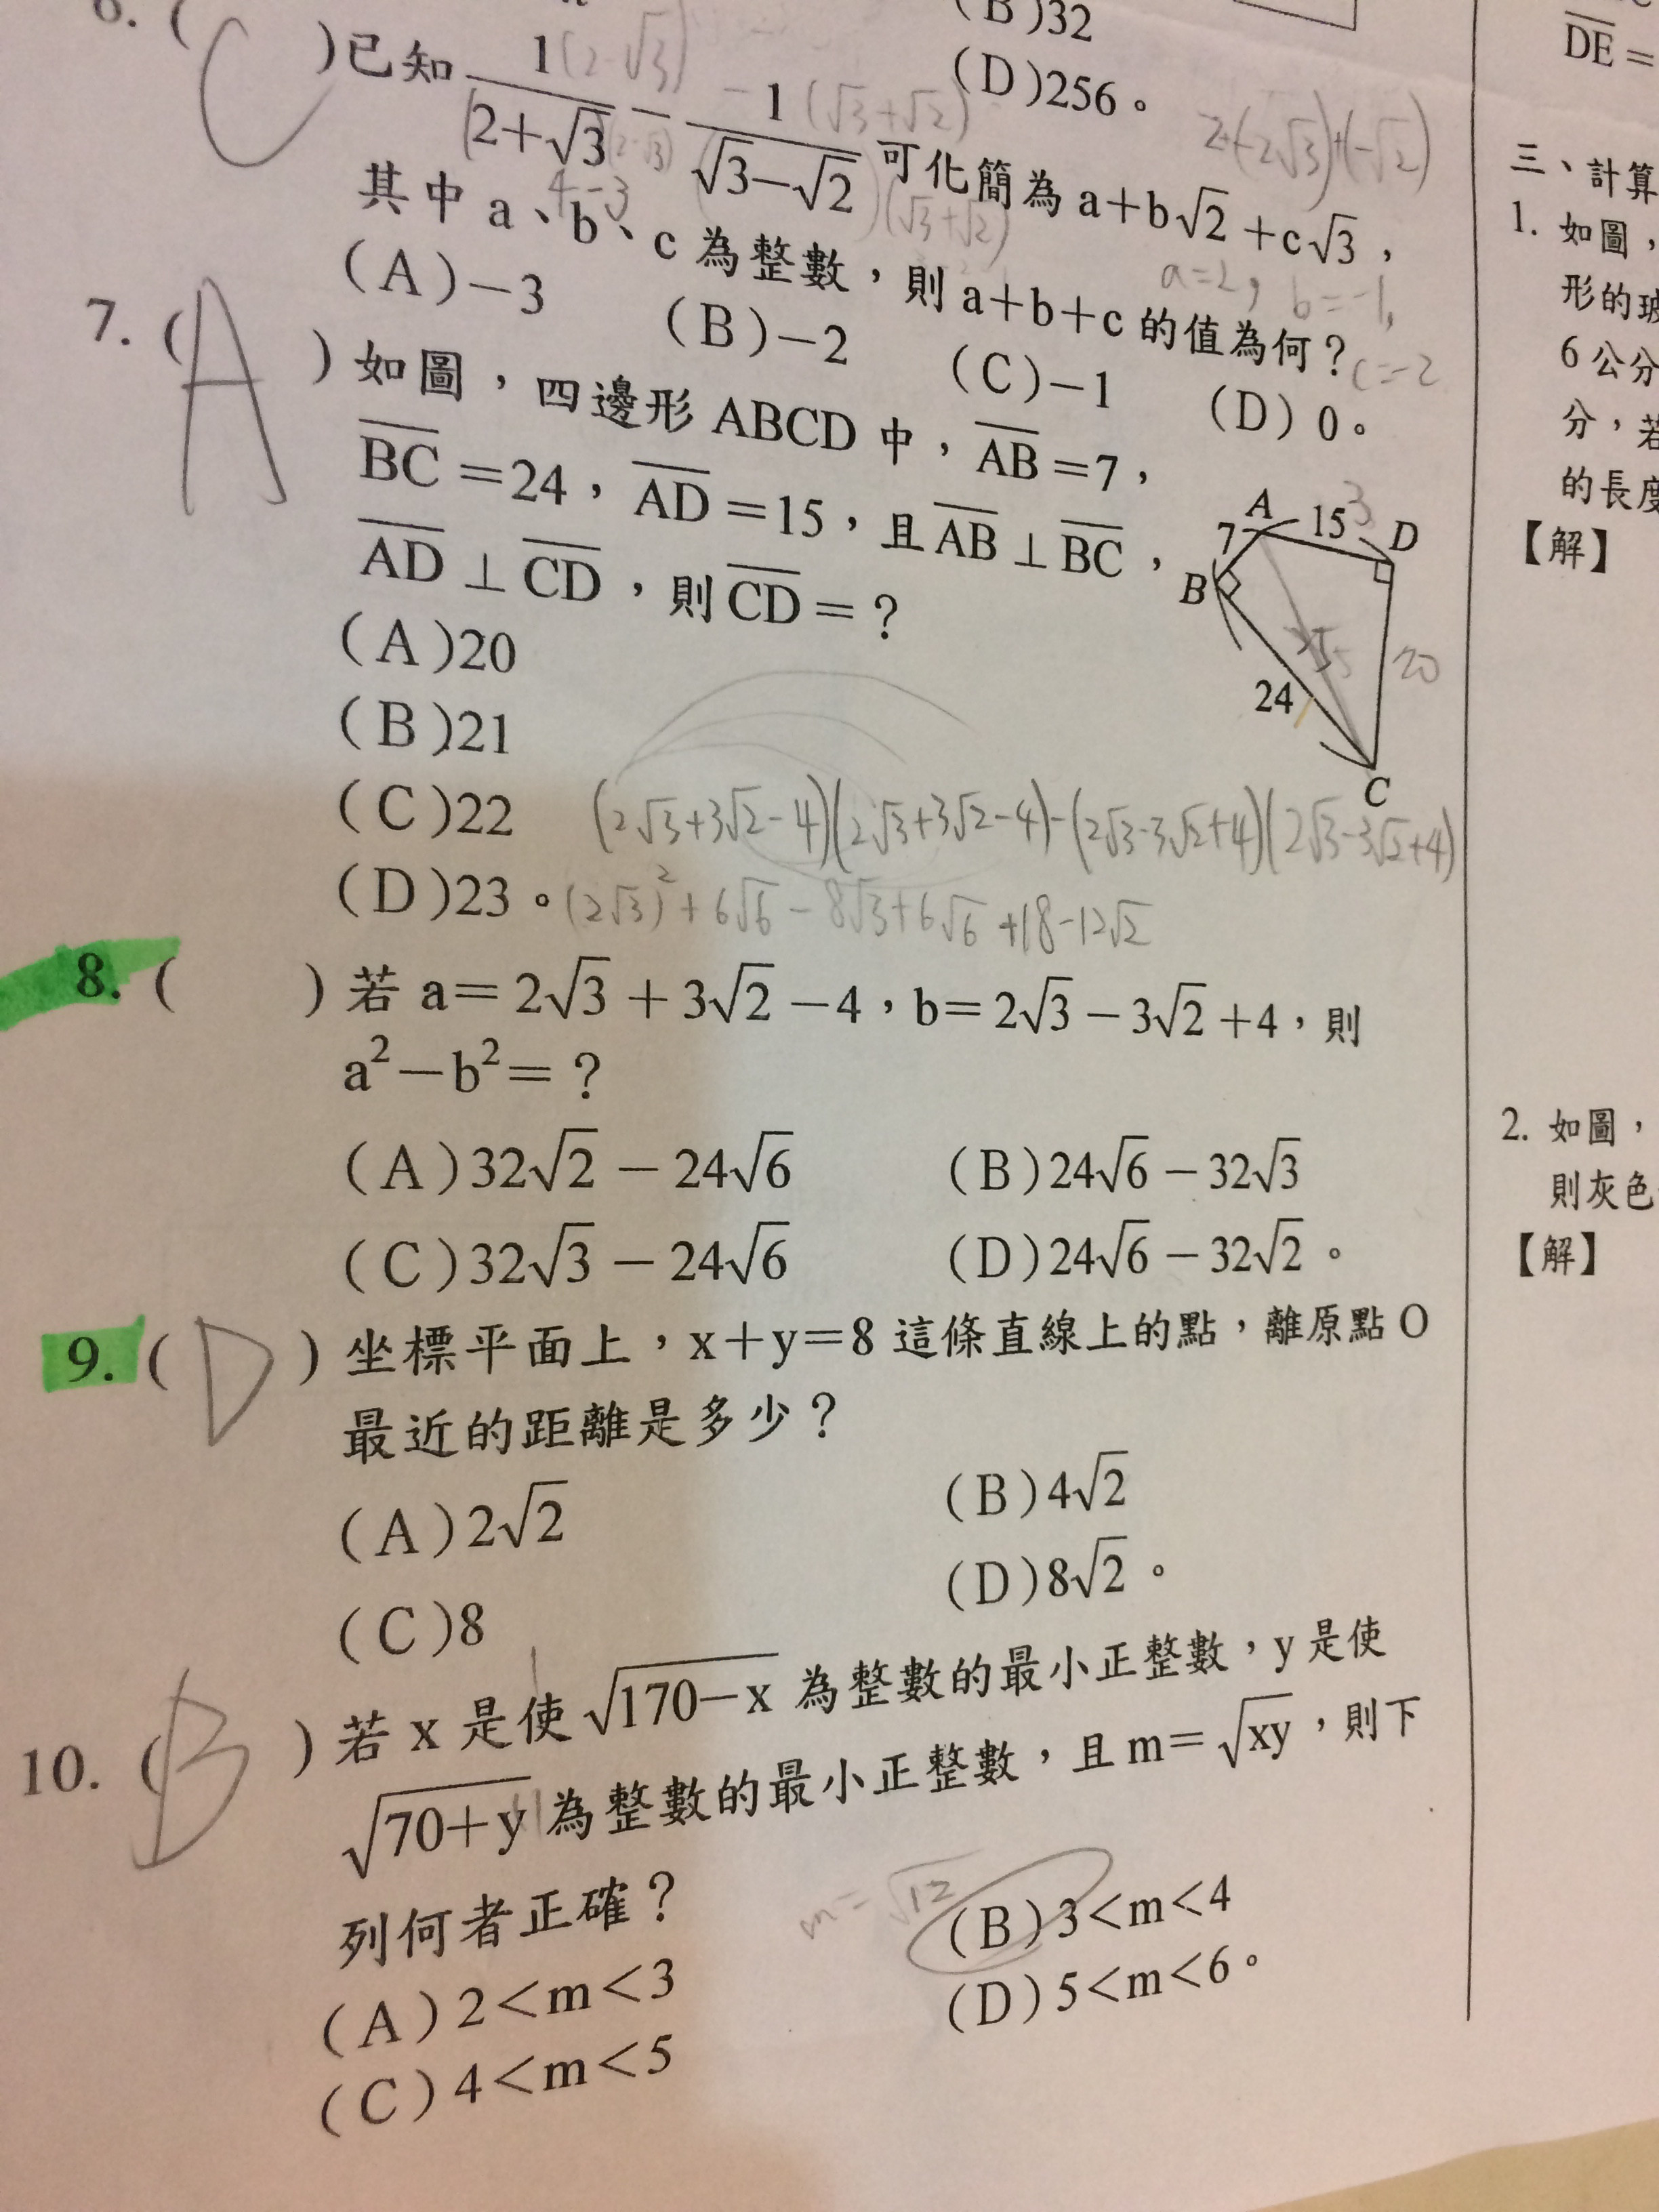 (B)32
(D)256。
6. (C)已知 1/(2+√3) − 1/(√3−√2) 可化簡為 a+b√2+c√3，
1(2-√3)
-1(√3+√2)
2+(-2√3)+(-√2)
(2-√3)
4-3
(√3+√2)
其中 a、b、c 為整數，則 a+b+c 的值為何？
a=2, b=-1,
c=-2
(A)−3 (B)−2 (C)−1 (D)0。
7. (A)如圖，四邊形 ABCD 中，AB=7，
BC=24，AD=15，且 AB⊥BC，
AD⊥CD，則 CD=？
(A)20
(B)21
(C)22
(D)23。
A 15 3 D
7
B
25
20
24
C
(2√3+3√2-4)(2√3+3√2-4)-(2√3-3√2+4)(2√3-3√2+4)
(2√3)²+6√6-8√3+6√6+18-12√2
8. ( )若 a=2√3+3√2−4，b=2√3−3√2+4，則
a²−b²=？
(A)32√2−24√6 (B)24√6−32√3
(C)32√3−24√6 (D)24√6−32√2。
9. (D)坐標平面上，x+y=8 這條直線上的點，離原點 O
最近的距離是多少？
(A)2√2 (B)4√2
(C)8 (D)8√2。
10. (B)若 x 是使 √(170−x) 為整數的最小正整數，y 是使
√(70+y) 為整數的最小正整數，且 m=√(xy)，則下
列何者正確？
m=√12
(A)2<m<3 (B)3<m<4
(C)4<m<5 (D)5<m<6。
DE=
三、計算
1. 如圖，
形的玻
6公分
分，若
的長度
【解】
2. 如圖，
則灰色
【解】